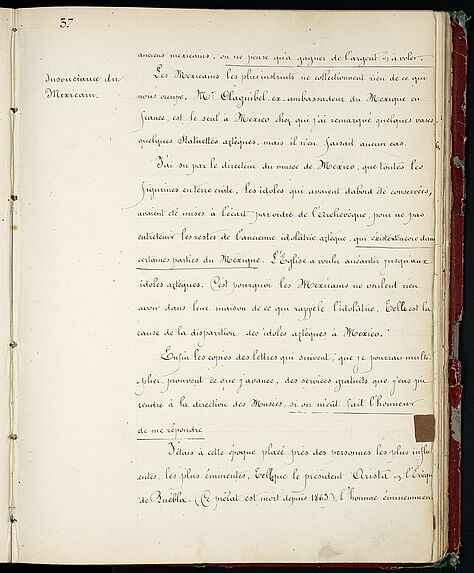 37
anciens mexicains, on ne pense qu'à gagner de l'argent, à voler.
Insouciance du
Mexicain.
Les Mexicains les plus instruits ne collectionnent rien de ce qui
nous occupe. Mr Olaguibel ex-ambassadeur du Mexique en
france, est le seul à Mexico chez qui j'ai remarqué quelques vases
quelques Statuettes aztèques, mais il n'en faisait aucun cas.
J'ai su par le directeur du musée de Mexico, que toutes les
figurines en terre cuite, les idoles qui avaient d'abord été conservées,
avaient été mises à l'écart par ordre de l'archevêque, pour ne pas
entretenir les restes de l'ancienne idolâtrie aztèque, qui existe encore dans
certaines parties du Mexique. L'Eglise a voulu anéantir jusqu'aux
idoles aztèques. C'est pourquoi les Mexicains ne veulent rien
avoir dans leur maison de ce qui rappele l'idolâtrie. Telle est la
cause de la disparition des idoles aztèques à Mexico.
Enfin les copies des lettres qui suivent, que je pourrais multi-
-plier, prouvent ce que j'avance, des services gratuits que j'eus pu
rendre à la direction des Musées, si on m'eût fait l'honneur
de me répondre
J'étais à cette époque placé près des personnes les plus influ
entes, les plus éminentes, tellque le président Arista, l'Evêque
de Puébla. (Ce prélat est mort depuis 1863), l'homme éminemment